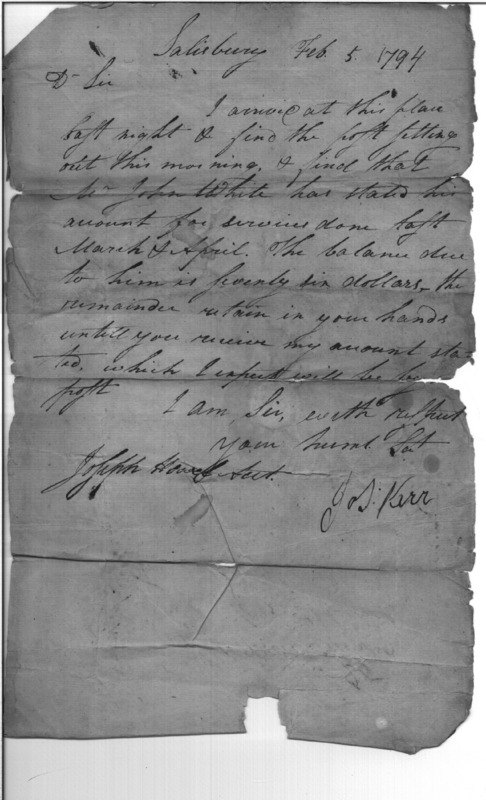 Salisbury Feb. 5. 1794
Dr Sir
I arrived at this place
last night & find the post setting
out this morning, & find that
Mr John White has stated his
account for services done last
March & April. The balance due
to him is seventy six dollars, the
remainder retain in your hands
untill you receive my account sta-
ted, which I expect will be by
post
I am Sir, with respect
your huml. Sert
Joseph Howell
Jos: Kerr